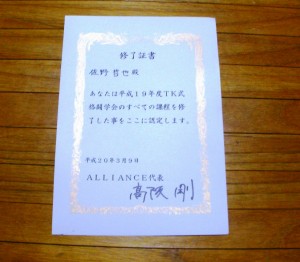 修了証書
佐野 哲也 殿
あなたは平成19年度TK式
格闘学会のすべての課程を修
了した事をここに認定します。
平成20年3月9日
ALLIANCE代表
高阪 剛